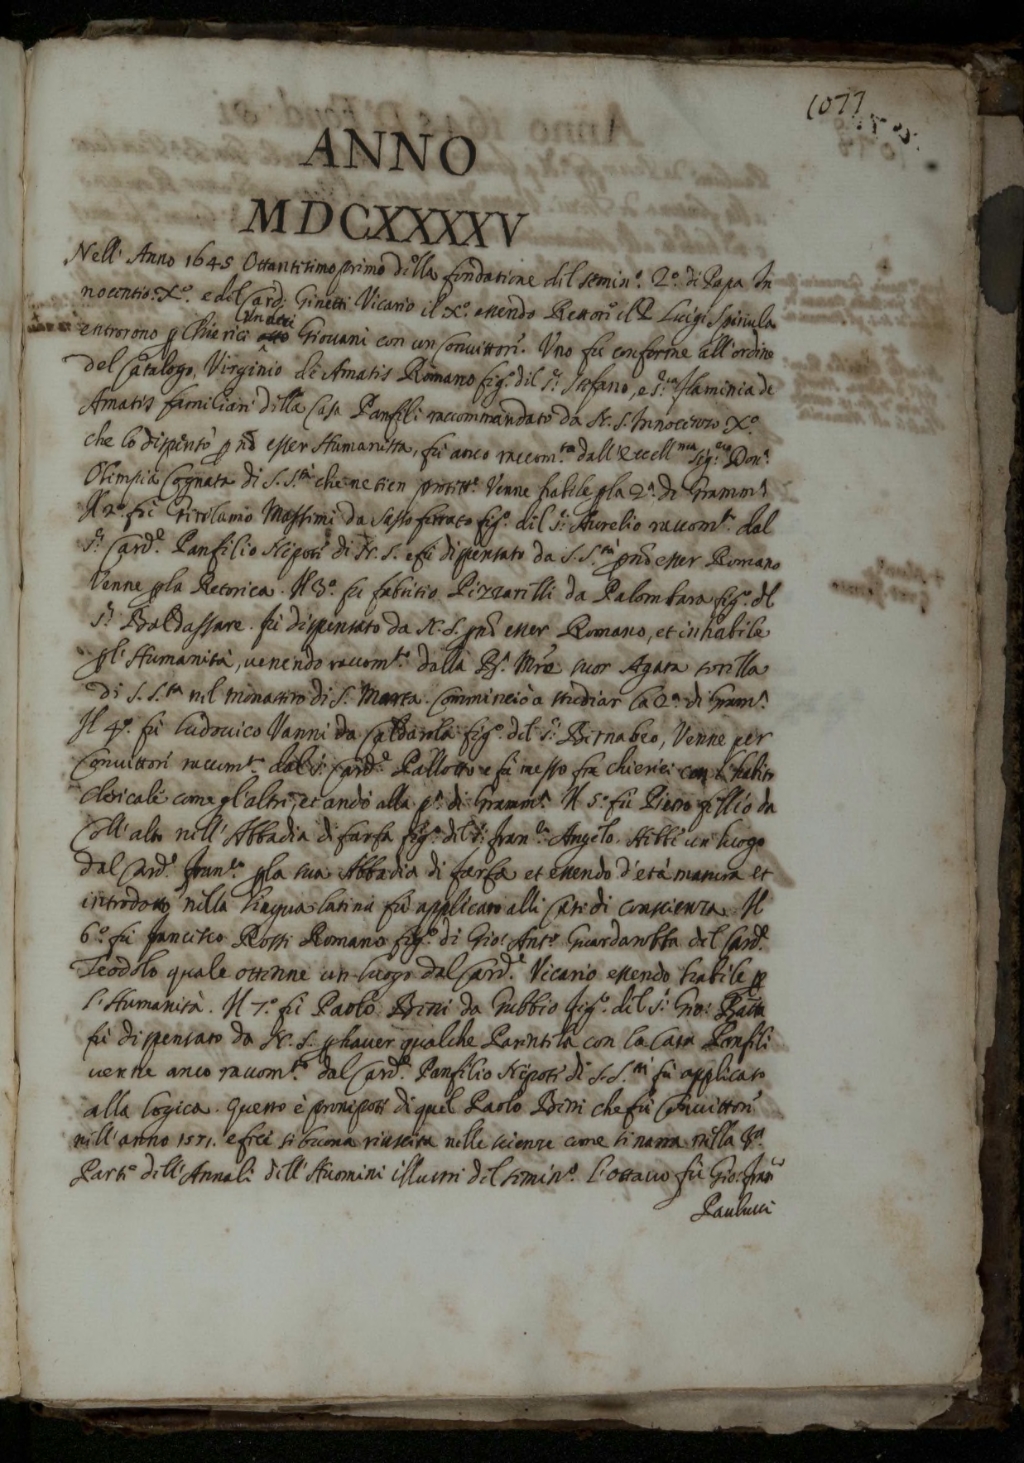 1077
ANNO
MDCXXXXV
Nell' Anno 1645 Ottantesimoprimo della fondatione del Semin.º 2.º di Papa In
nocentio Xº. e del Card: Ginetti Vicario il Xº. essendo Rettore il P. Luigi Spinula
entrorono p Chierici otto Undeci Giovani con un Convittore. Uno fu conforme all'ordine
del Catalogo, Virginio de Amatis Romano fig.º del S.r Stefano, e S.ra Flaminia de
Amatis familiari della Casa Panfili raccommandato da N. S. Innocenzo Xº.
che lo dispensò p nõ esser Humanista, fu anco raccom.to dall'Eccell.ma Sig.ra Don.a
Olimpia Cognata di S. S.tà che ne tien Venne habile p la 2.ª di Gramm.ª
Il 2.º fu Girolamo Massimi da Sassoferrato fig.º del S.r Aurelio raccom.to dal
S.r Card.e Panfilio Nipote di N. S. e fu dispensato da S. S.tà p nõ esser Romano
Venne p la Retorica. Il 3.º fu Fabritio Pizzarilli da Palombara fig.º del
S.r Baldassare fu dispensato da N. S. p nõ esser Romano, et inhabile
p l'Humanità, venendo raccom.to dalla R.ª Mrẽ suor Agata sorella
di S. S.tà nel monastero di S. Marta. Cominciò a studiar la 2.ª di Gram.ª
Il 4.º fu Ludovico Vanni da Caldarola fig.º del S.r Bernabeo, Venne per
Convittore racom.to dal S.r Card.e Pallotto e fu messo fra chierici con l'habito
clericale come gl'altri, et andò alla p.ª di Gramm.ª Il 5.º fu Pietro fillio da
Coll'alto nell'Abbadia di Farfa fig.º del S.r Fran.co Angelo. Hebbe un luogo
dal Card. Fran.co p la sua Abbadia di Farfa et essendo d'età matura et
introdotto nella lingua latina fu applicato alli Casi di conscienza. Il
6.º fu Francesco Rossi Romano fig.º di Gio: Ant.º Guardarobba del Card.e
Teodolo quale ottenne un luogo dal Card.e Vicario essendo habile p
l'Humanità. Il 7.º fu Paolo Beni da Gubbio fig.º del S.r Gio: Batta
fu dispensato da N. S. p haver qualche Parentela con la Casa Panfili
venne anco raccom.to dal Card.e Panfilio Nipote di S. S.tà fu applicato
alla Logica. Questo è pronipote di quel Paolo Beni che fu Convittore
nell'anno 1571. e fece si buona riuscita nelle scienze come si narra nella
Parte dell'Annali dell'Huomini illustri del Semin.º L'ottavo fu Gio: Fran.co
Paulucci